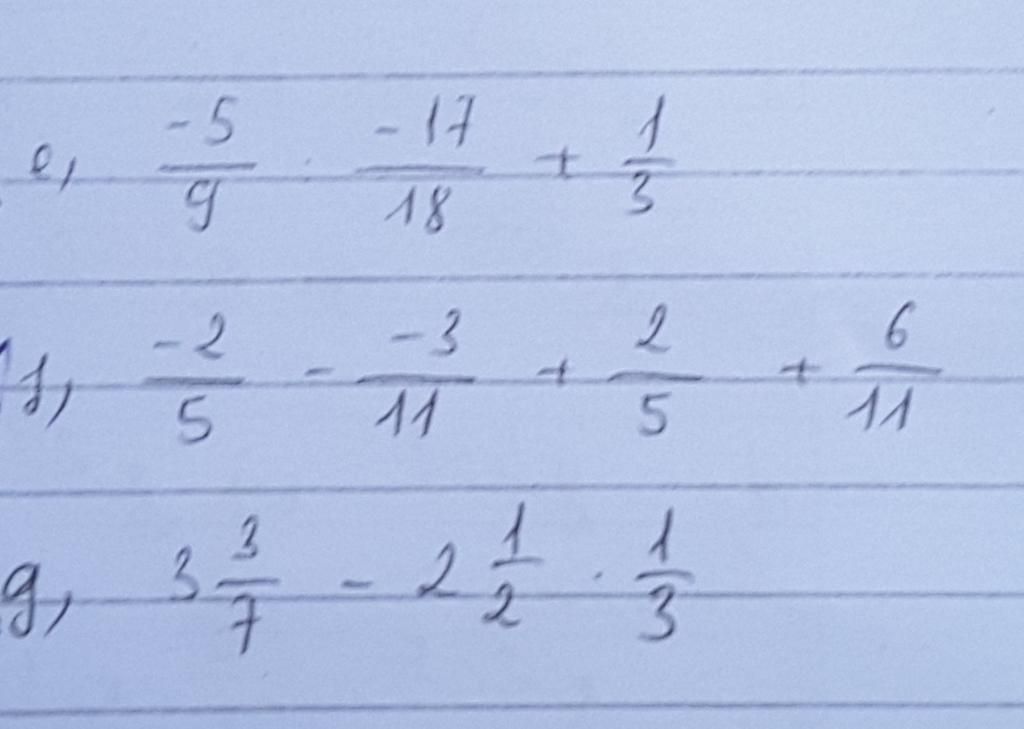 e, \frac{-5}{9} : \frac{-17}{18} + \frac{1}{3}
f, \frac{-2}{5} - \frac{-3}{11} + \frac{2}{5} + \frac{6}{11}
g, 3\frac{3}{7} - 2\frac{1}{2} \cdot \frac{1}{3}